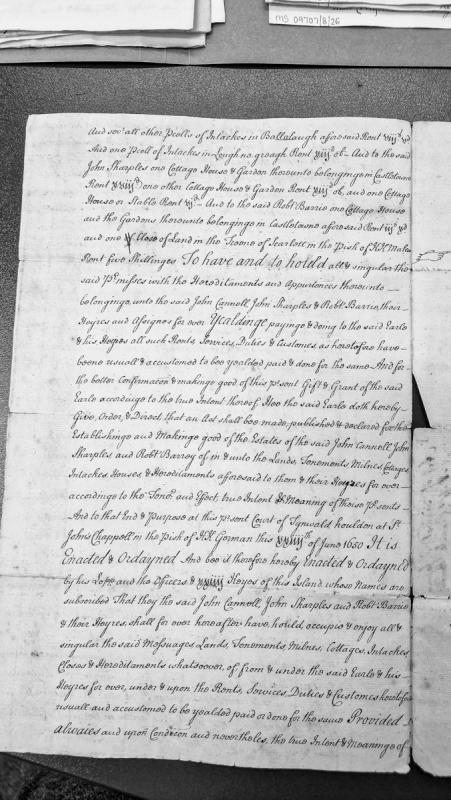 MS 09707/8/26
And sev.ll all other Pcells of Intackes in Ballalaugh afores.d Rent
And one Pcell of Intackes in Lough no. groagh Rent xiiij.d ob - And to the said
John Sharples one Cottage House & Garden thereunto belonginge in Castletowne
Rent one other Cottage House & Garden Rent ob, and one Cottage
House or Stable Rent - And to the said Rob.t Barrie one Cottage House
and the Gardens thereunto belonginge in Castletowne aforesaid Rent
and one Close of Land in the Treene of Scarlett in the Pish of KK Malew
Rent five Shillinges To have and to hould all & singular the
said P.misses with the Hereditaments and Appurtences thereunto
belonginge, unto the said John Cannell, John Sharples & Rob.t Barrie, their
Heyres and Assignes for ever Yealdinge payinge & doing to the said Earle
& his Heyres all such Rents, Services, Duties & Customes, as heretofore have
beene usuall & accustomed to bee yealded paid & done for the same And for
the better Confirmacon & makinge good of this p.sent Gift & Grant of the said
Earle accordinge to the true Intent thereof Hee the said Earle doth hereby
Give, Order, & Direct, that an Act shall bee made, published & declared for the
Establishinge and Makinge good of the Estates of the said John Cannell, John
Sharples and Rob.t Barrey of in & unto the Lands, Tenements, Milnes, Cottages,
Intackes, Houses, & Hereditaments aforesaid to them & their Heyres for ever
accordinge to the Teno.r and Effect, true Intent & Meaning of these p.sents
And to that End & Purpose at this p.sent Court of Tynwald houlden at St.
Johns Chappell in the Pish of KK German this of June 1650 It is
Enacted & Ordayned And bee it therefore hereby Enacted & Ordayned
by his Lopp and the Officers & xxiiij Keyes of this Island whose Names are
subscribed That they the said John Cannell, John Sharples and Rob.t Barrie
& their Heyres, shall for ever hereafter have, hould, occupie & enjoy all &
singular the said Messuages Lands, Tenements, Milnes, Cottages, Intackes
Closes & Hereditaments whatsoever, of from & under the said Earle & his
Heyres for ever, under & upon the Rents, Services, Duties & Customes heretofore
usuall and accustomed to be yealded paid or done for the same Provided
alwaies and upon Condicon and nevertheles, the true Intent & Meaninge of